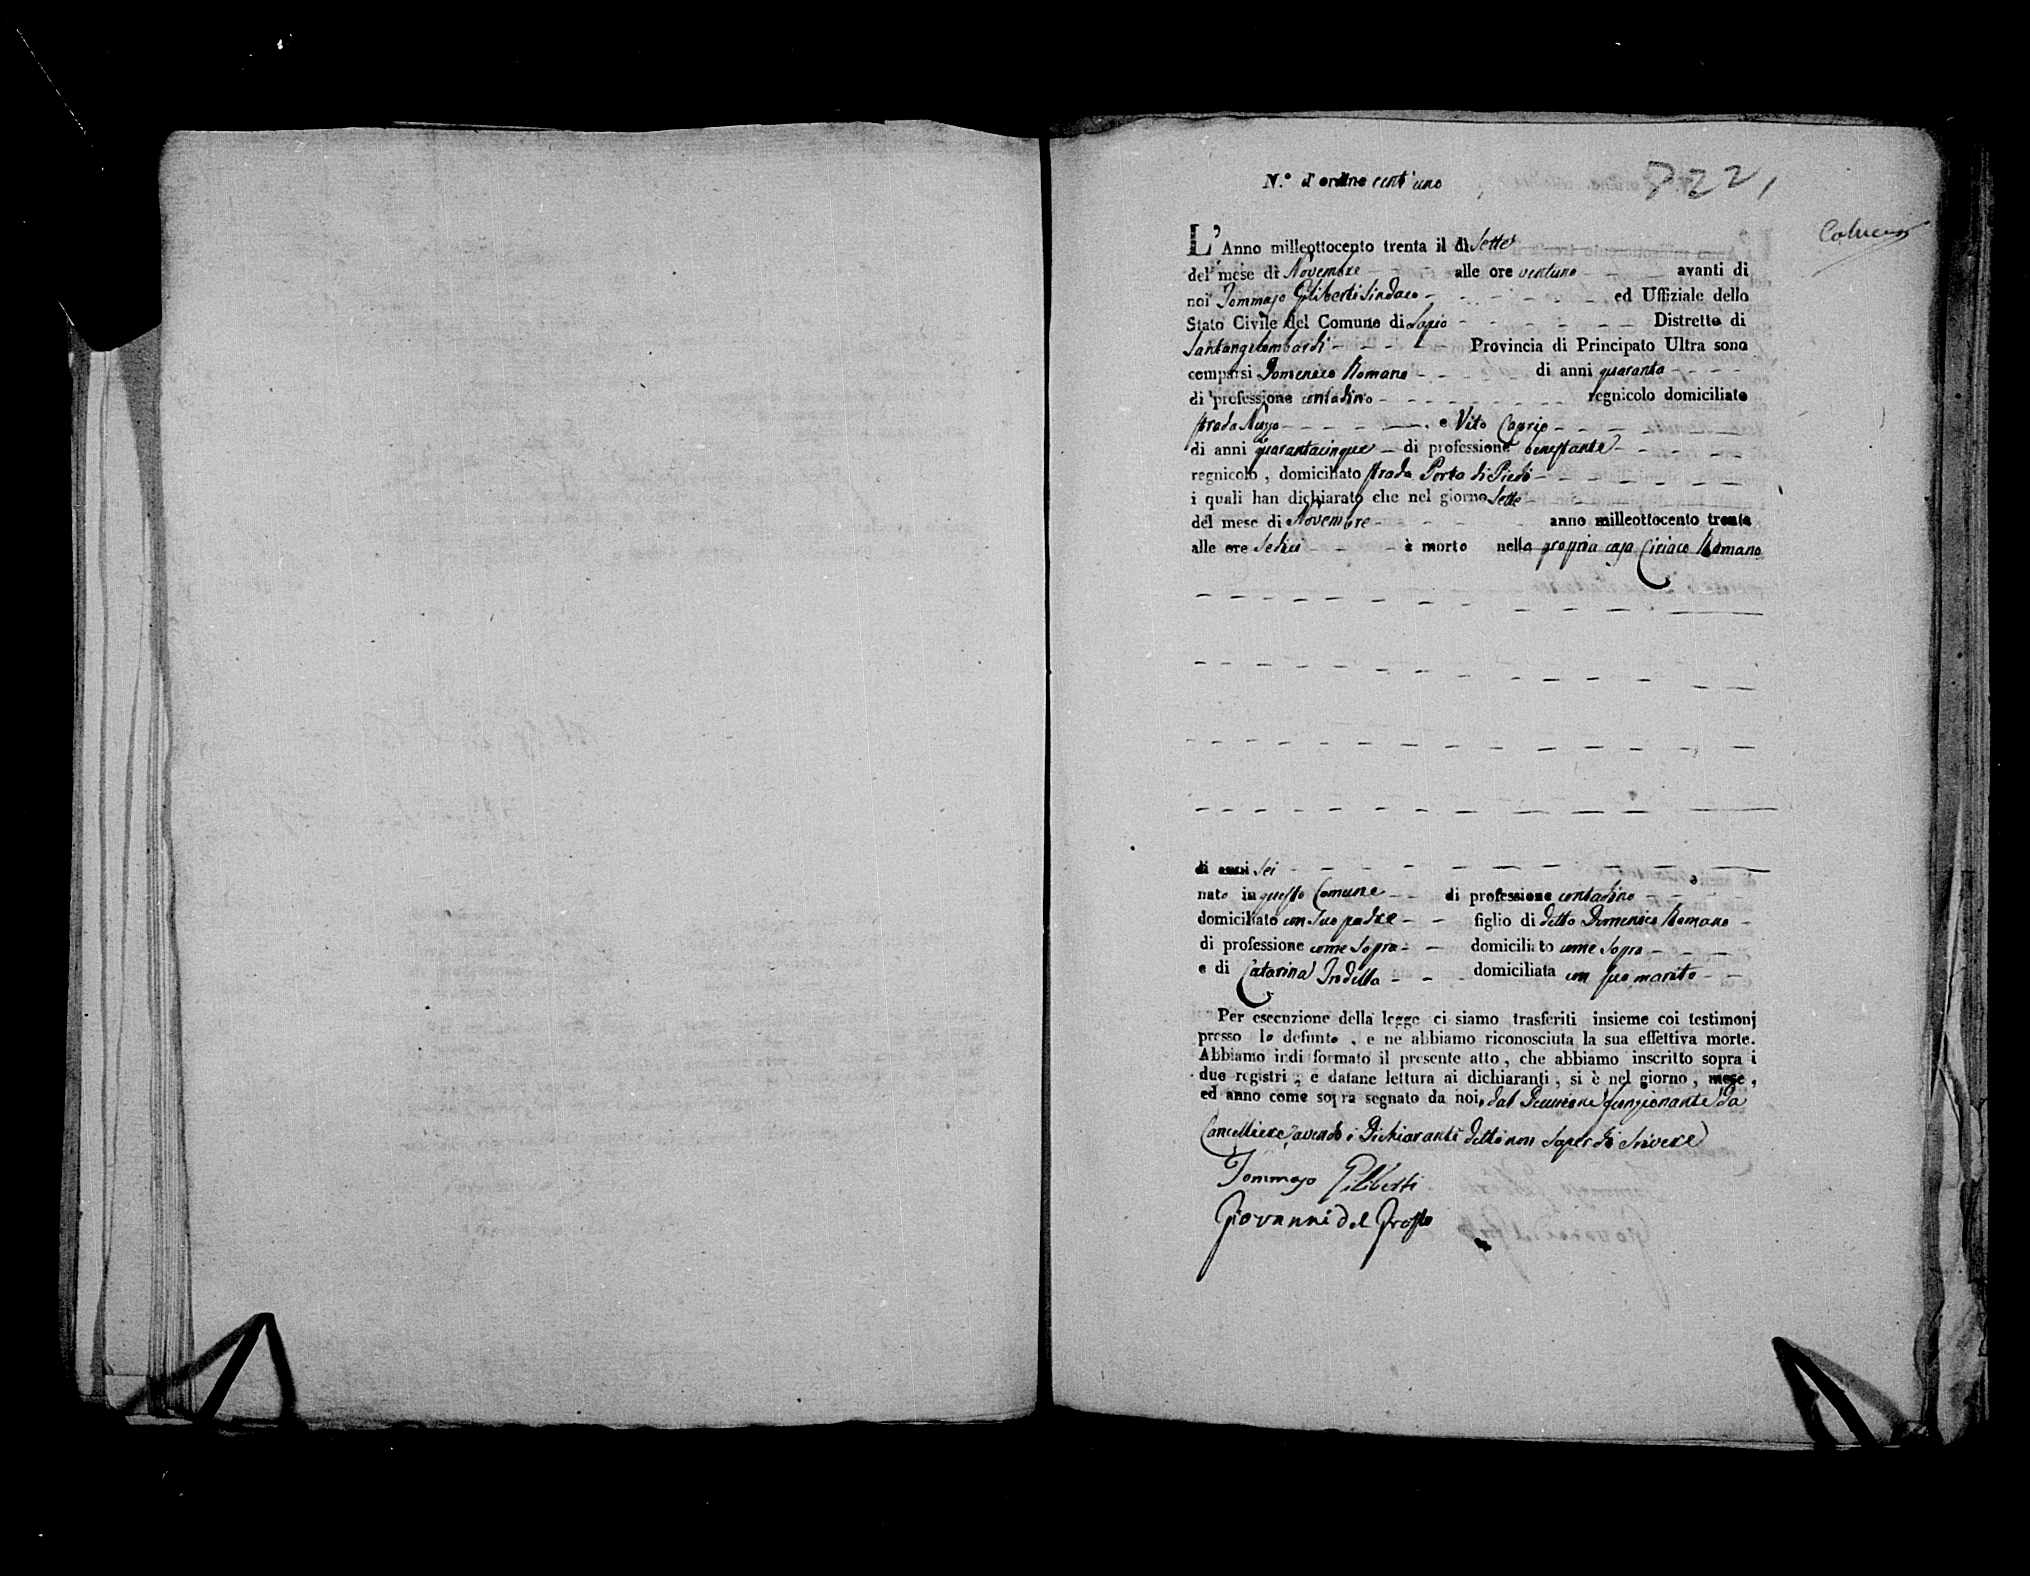 N.° d'ordine cent'uno
722,
L'Anno milleottocento trenta il dì Sette
del mese di Novembre alle ore ventuno avanti di
noi Tommaso Giliberti Sindaco ed Uffiziale dello
Stato Civile del Comune di Distretto di
Santangelombardi Provincia di Principato Ultra sono
comparsi Domenico Romano di anni quaranta
di professione contadino regnicolo domiciliato
strada e Vito Caprio
di anni quarantacinque di professione benestante
regnicolo, domiciliato strada Porta di Piedi
i quali han dichiarato che nel giorno Sette
del mese di Novembre anno milleottocento trenta
alle ore Sedici è morto nella propria casa Ciriaco Romano
di anni Sei
nato in questo Comune di professione contadino
domiciliato con suo padre figlio di detto Domenico Romano
di professione come sopra domiciliato come sopra
e di Catarina Indella domiciliata con suo marito
Per esecuzione della legge ci siamo trasferiti insieme coi testimonj
presso lo defunto, e ne abbiamo riconosciuta la sua effettiva morte.
Abbiamo indi formato il presente atto, che abbiamo inscritto sopra i
due registri, e datane lettura ai dichiaranti, si è nel giorno, mese,
ed anno come sopra segnato da noi, dal Decurione funzionante da
Cancelliere, avendo i Dichiaranti detto non saper di scrivere
Tommaso Giliberti
Giovanni del Grosso